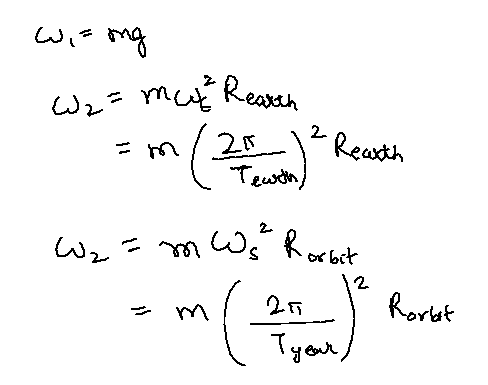 ω₁ = mg
ω₂ = mωₜ² Rearth
= m (2π / Tearth)² Rearth
ω₂ = m ωₛ² Rorbit
= m (2π / Tyear)² Rorbit